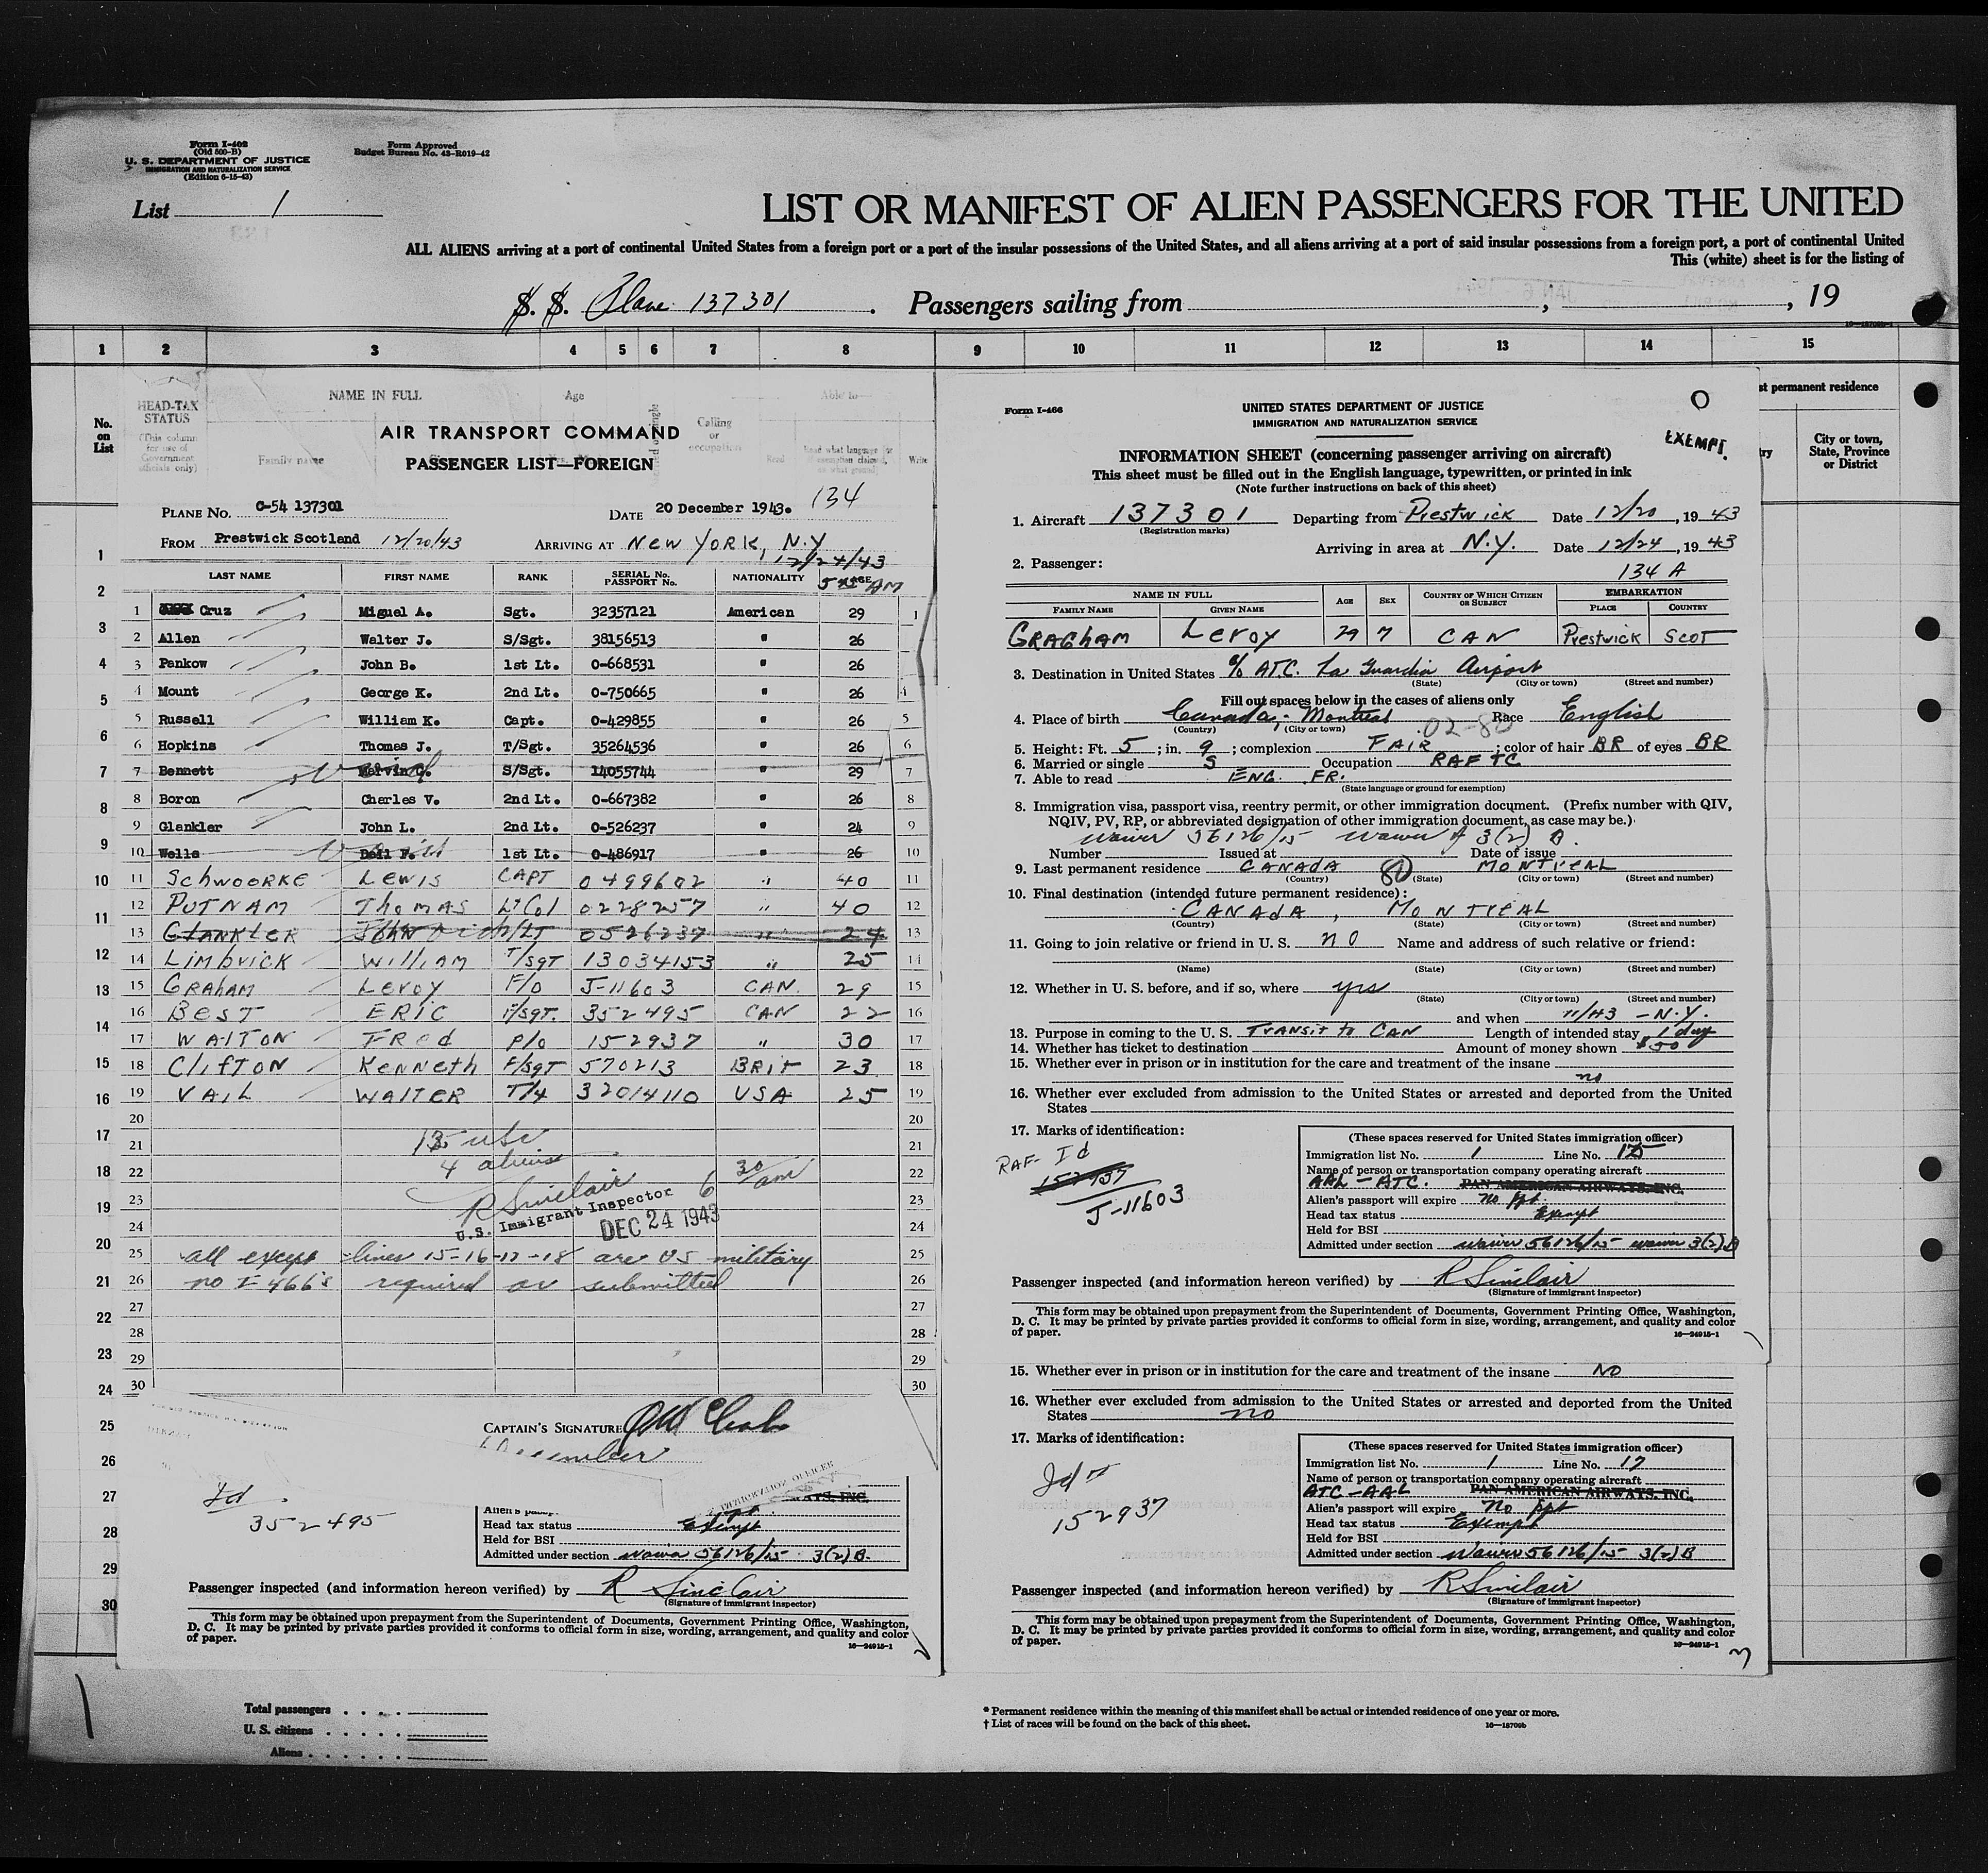 Form I-402
(Old 500-B)
U. S. DEPARTMENT OF JUSTICE
IMMIGRATION AND NATURALIZATION SERVICE
(Edition 6-15-43)
Form Approved
Budget Bureau No. 43-R019-42
List 1
LIST OR MANIFEST OF ALIEN PASSENGERS FOR THE UNITED
ALL ALIENS arriving at a port of continental United States from a foreign port or a port of the insular possessions of the United States, and all aliens arriving at a port of said insular possessions from a foreign port, a port of continental United
This (white) sheet is for the listing of
S. S. Plane 137301 . Passengers sailing from , , 19
1 2 3 4 5 6 7 8 9 10 11 12 13 14 15
No. on List
HEAD-TAX STATUS
(This column for use of Government officials only)
NAME IN FULL
Family name
Age
Calling or occupation
Able to—
Read
Write
st permanent residence
City or town, State, Province or District
AIR TRANSPORT COMMAND
PASSENGER LIST—FOREIGN
134
PLANE NO. C-54 137301 DATE 20 December 1943.
FROM Prestwick Scotland 12/20/43 ARRIVING AT NEW YORK, N.Y
12/24/43
LAST NAME FIRST NAME RANK SERIAL NO. PASSPORT NO. NATIONALITY AGE
1 Cruz Miguel A. Sgt. 32357121 American 29 1
2 Allen Walter J. S/Sgt. 38156513 " 26
3 Pankow John B. 1st Lt. 0-668531 " 26
4 Mount George K. 2nd Lt. 0-750665 " 26 4
5 Russell William K. Capt. 0-429855 " 26 5
6 Hopkins Thomas J. T/Sgt. 35264536 " 26 6
7 Bennett Marvin G. S/Sgt. 14055744 " 29 7
8 Boron Charles V. 2nd Lt. 0-667382 " 26 8
9 Glankler John L. 2nd Lt. 0-526237 " 24 9
10 Wells F. 1st Lt. 0-486917 " 26 10
11 SCHWOERKE LEWIS CAPT 0499602 " 40 11
12 PUTNAM THOMAS Lt Col 0228257 " 40 12
13 GLANKLER JOHN 2/LT 0526237 " 24 13
14 LIMBRICK WILLIAM T/SGT 13034153 " 25 14
15 GRAHAM LEROY F/O J-11603 CAN. 29 15
16 BEST ERIC F/SGT. 352495 CAN 22 16
17 WALTON FRED P/O 152937 " 30 17
18 CLIFTON KENNETH F/SGT 570213 BRIT 23 18
19 VAIL WALTER T/4 32014110 USA 25 19
20 20
21 21
22 4 aliens 22
23 R Sinclair 6 30/am 23
U.S. Immigrant Inspector
24 DEC 24 1943 24
25 all except lines 15-16-17-18 are US military 25
26 no I-466's required or submitted 26
27 27
28 28
29 29
30 30
CAPTAIN'S SIGNATURE
Id
352495
Head tax status Exempt
Held for BSI
Admitted under section waiver 56126/15 3(2)B.
Passenger inspected (and information hereon verified) by R Sinclair
(Signature of immigrant inspector)
This form may be obtained upon prepayment from the Superintendent of Documents, Government Printing Office, Washington,
D. C. It may be printed by private parties provided it conforms to official form in size, wording, arrangement, and quality and color
of paper.
16—24915-1
Form I-466
UNITED STATES DEPARTMENT OF JUSTICE
IMMIGRATION AND NATURALIZATION SERVICE
EXEMPT.
INFORMATION SHEET (concerning passenger arriving on aircraft)
This sheet must be filled out in the English language, typewritten, or printed in ink
(Note further instructions on back of this sheet)
1. Aircraft 137301 Departing from Prestwick Date 12/20, 1943
(Registration marks)
Arriving in area at N.Y. Date 12/24, 1943
2. Passenger: 134 A
NAME IN FULL AGE SEX COUNTRY OF WHICH CITIZEN OR SUBJECT EMBARKATION
FAMILY NAME GIVEN NAME PLACE COUNTRY
GRAGHAM LEROY 29 M CAN Prestwick SCOT
3. Destination in United States c/o ATC. La Guardia Airport
(State) (City or town) (Street and number)
Fill out spaces below in the cases of aliens only
4. Place of birth Canada, - Montreal Race English
(Country) (City or town)
5. Height: Ft. 5 ; in. 9 ; complexion FAIR ; color of hair BR of eyes BR
6. Married or single S Occupation RAFTC
7. Able to read ENG. FR.
(State language or ground for exemption)
8. Immigration visa, passport visa, reentry permit, or other immigration document. (Prefix number with QIV,
NQIV, PV, RP, or abbreviated designation of other immigration document, as case may be.)
waiver 56126/15 waiver of 3(2) B.
Number Issued at Date of issue
9. Last permanent residence CANADA MONTREAL
(Country) (State) (City or town) (Street and number)
10. Final destination (intended future permanent residence):
CANADA, MONTREAL
(Country) (State) (City or town) (Street and number)
11. Going to join relative or friend in U. S. no Name and address of such relative or friend:
(Name) (State) (City or town) (Street and number)
12. Whether in U. S. before, and if so, where yes
(State) (City or town) (Street and number)
and when 11/43 - N.Y.
13. Purpose in coming to the U. S. TRANSIT to CAN Length of intended stay 1 day
14. Whether has ticket to destination Amount of money shown $50
15. Whether ever in prison or in institution for the care and treatment of the insane
no
16. Whether ever excluded from admission to the United States or arrested and deported from the United
States
17. Marks of identification:
RAF- Id
152937
J-11603
(These spaces reserved for United States immigration officer)
Immigration list No. 1 Line No. 15
Name of person or transportation company operating aircraft
AAL - ATC. PAN AMERICAN AIRWAYS, INC.
Alien's passport will expire no ppt.
Head tax status Exempt
Held for BSI
Admitted under section waiver 56126/15 waiver 3(2)B
Passenger inspected (and information hereon verified) by R Sinclair
(Signature of immigrant inspector)
This form may be obtained upon prepayment from the Superintendent of Documents, Government Printing Office, Washington,
D. C. It may be printed by private parties provided it conforms to official form in size, wording, arrangement, and quality and color
of paper.
16—24915-1
15. Whether ever in prison or in institution for the care and treatment of the insane NO
16. Whether ever excluded from admission to the United States or arrested and deported from the United
States no
17. Marks of identification:
Id #
152937
(These spaces reserved for United States immigration officer)
Immigration list No. 1 Line No. 17
Name of person or transportation company operating aircraft
ATC - AAL PAN AMERICAN AIRWAYS, INC.
Alien's passport will expire No ppt
Head tax status Exempt
Held for BSI
Admitted under section Waiver 56126/15 3(2)B
Passenger inspected (and information hereon verified) by R Sinclair
(Signature of immigrant inspector)
This form may be obtained upon prepayment from the Superintendent of Documents, Government Printing Office, Washington,
D. C. It may be printed by private parties provided it conforms to official form in size, wording, arrangement, and quality and color
of paper.
16—24915-1
Total passengers
U. S. citizens
Aliens
* Permanent residence within the meaning of this manifest shall be actual or intended residence of one year or more.
† List of races will be found on the back of this sheet.
16—18709b